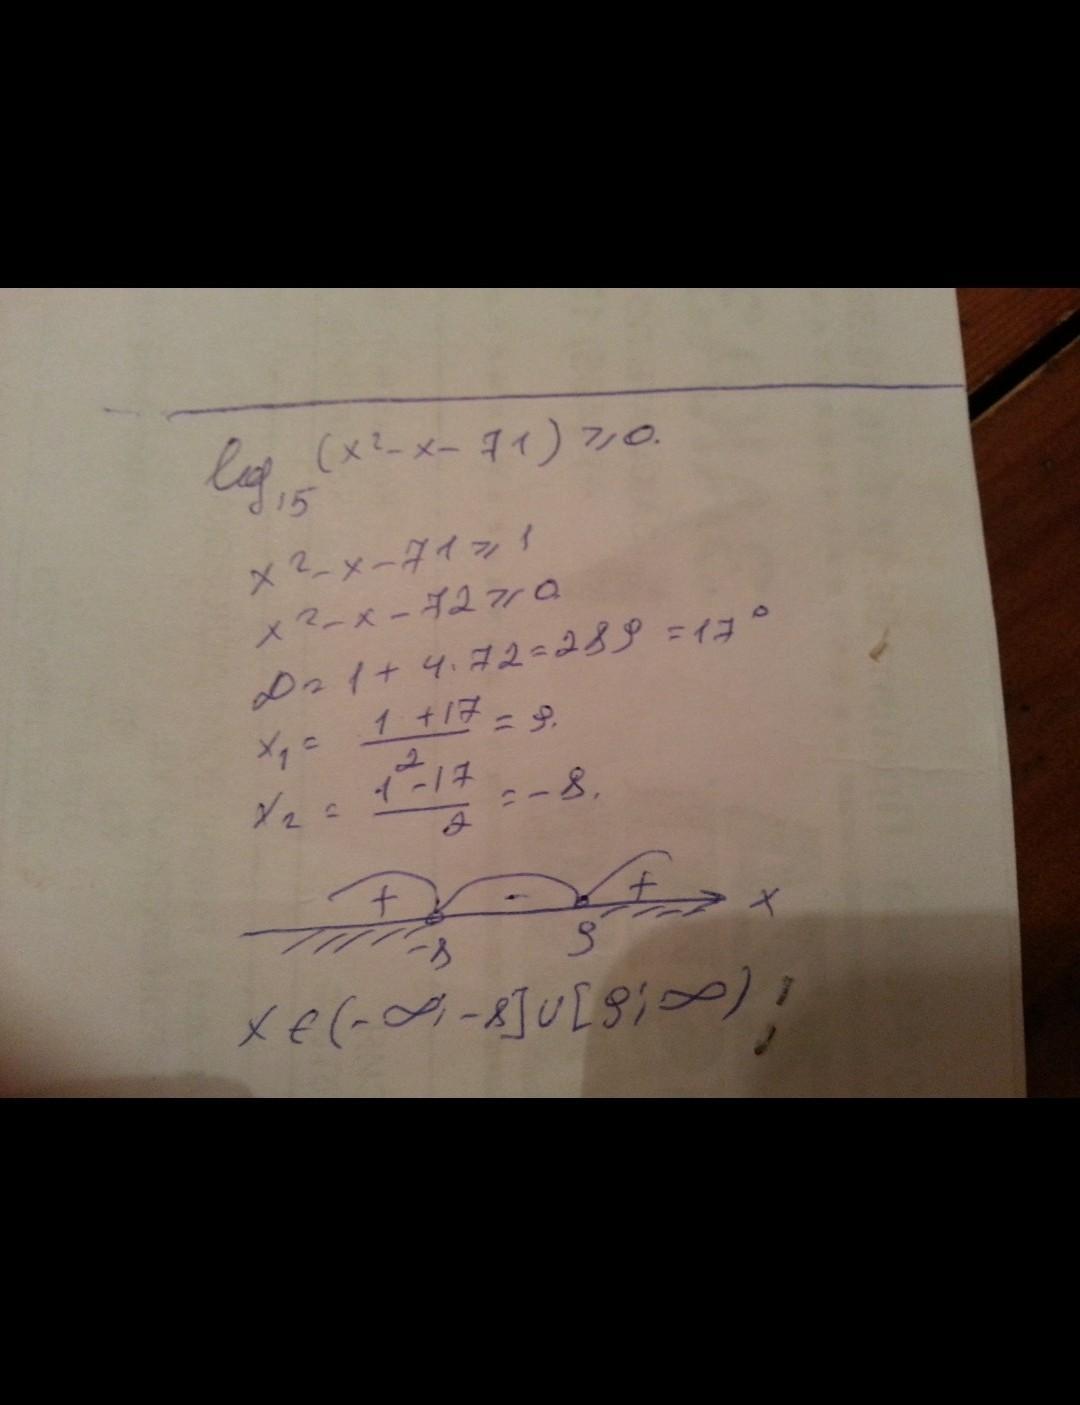 log₁₅ (x²-x-71) ≥ 0.
x²-x-71 ≥ 1
x²-x-72 ≥ 0
D = 1 + 4·72 = 289 = 17²
x₁ = (1+17)/2 = 9.
x₂ = (1-17)/2 = -8.
+ - + x
-8 9
x ∈ (-∞; -8] ∪ [9; ∞)